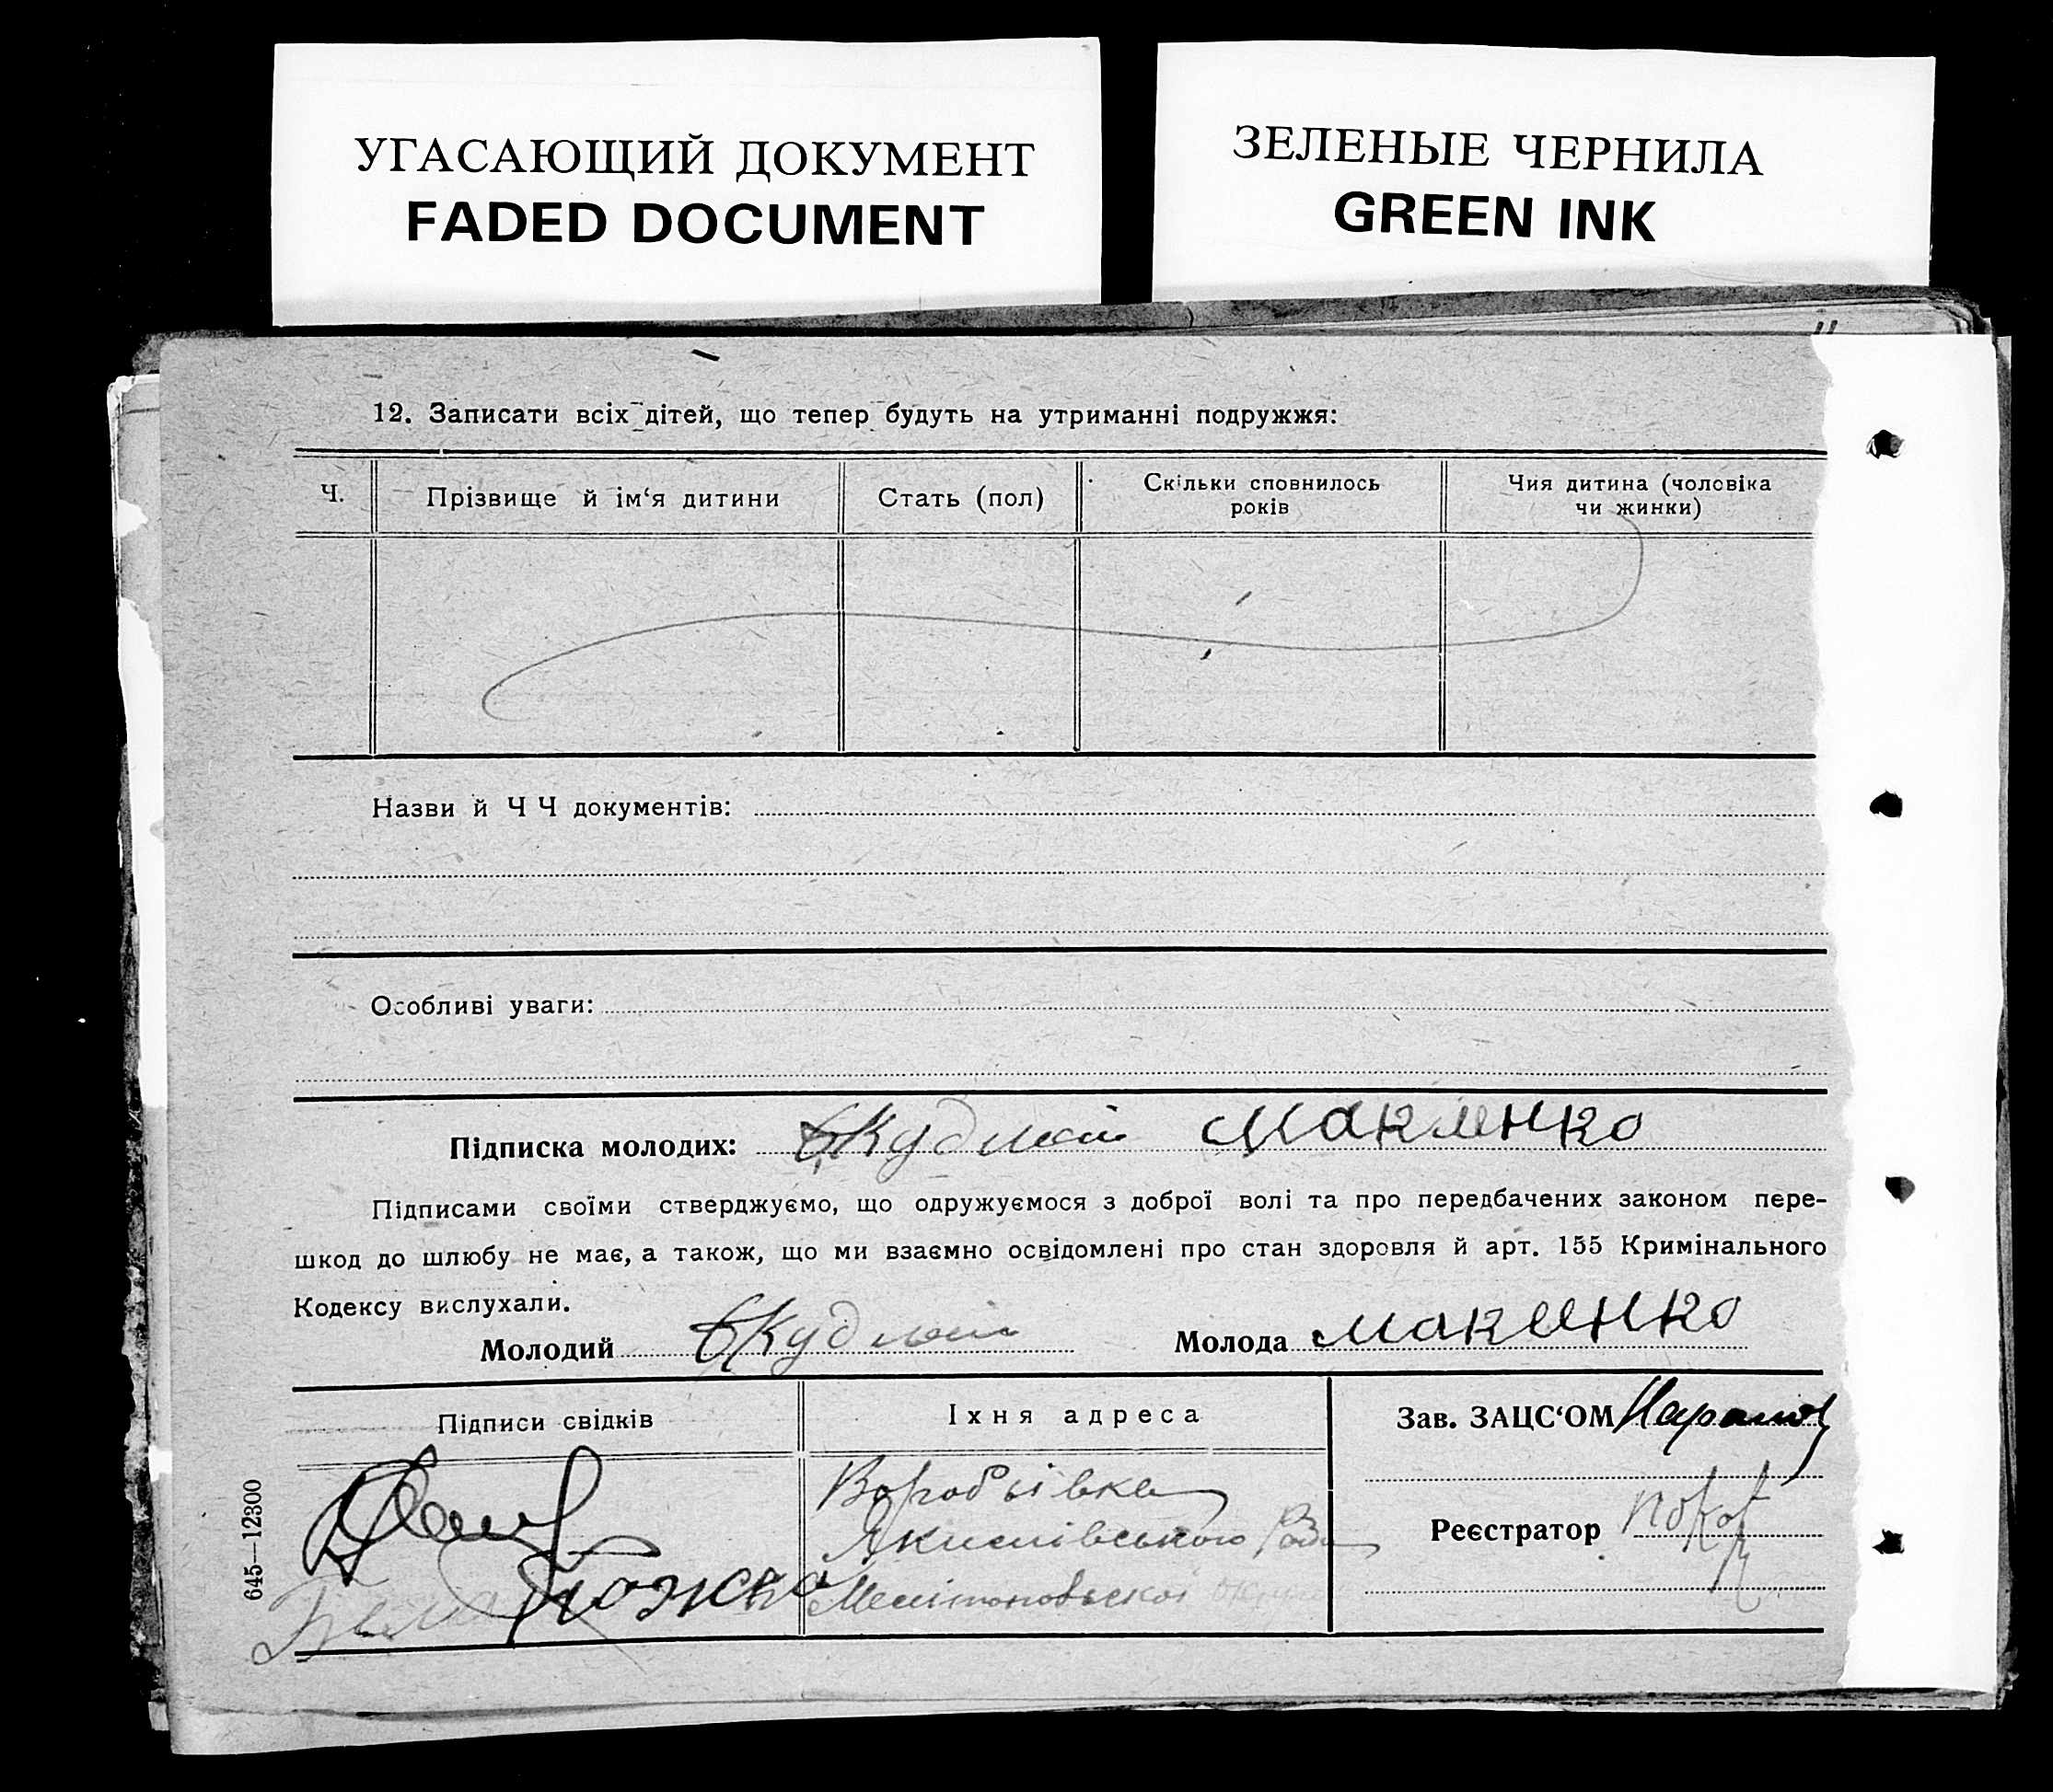 УГАСАЮЩИЙ ДОКУМЕНТ
FADED DOCUMENT
ЗЕЛЕНЫЕ ЧЕРНИЛА
GREEN INK
12. Записати всіх дітей, що тепер будуть на утриманні подружжя:
Ч.
Прізвище й ім‘я дитини
Стать (пол)
Скільки сповнилось
років
Чия дитина (чоловіка
чи жинки)
Назви й Ч Ч документів:
Особливі уваги:
Підписка молодих: Макиенко
Підписами своїми стверджуємо, що одружуємося з доброї волі та про передбачених законом пере-
шкод до шлюбу не має, а також, що ми взаємно освідомлені про стан здоровля й арт. 155 Кримінального
Кодексу вислухали.
Молодий
Молода Макиенко
Підписи свідків
Їхня адреса
Зав. ЗАЦС‘ОМ
Воробьівка
Якимівського
Реєстратор
645—12300